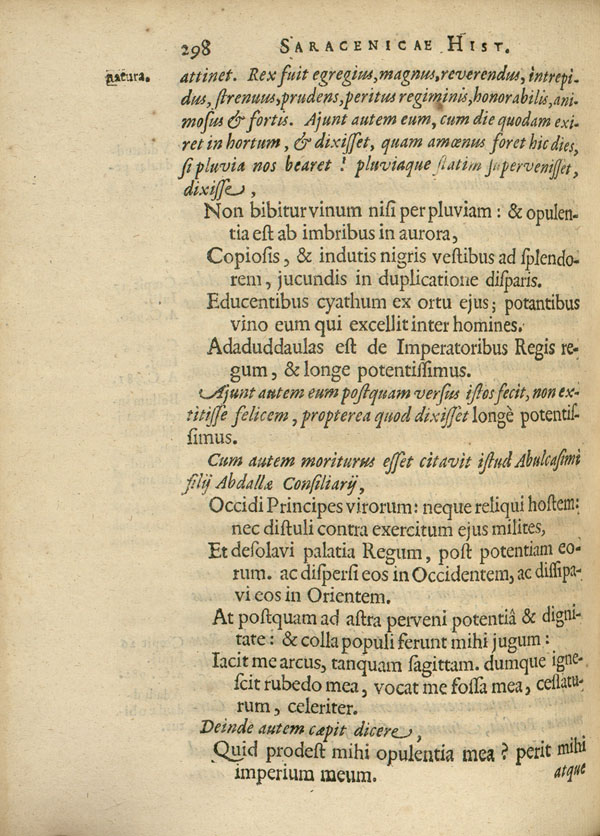 298 SARACENICAE HIST.
natura.
attinet. Rex fuit egregius, magnus, reverendus, intrepi-
dus, strenuus, prudens, peritus regiminis, honorabilis, ani-
mosus & fortis. Ajunt autem eum, cum die quodam exi-
ret in hortum, & dixisset, quam amœnus foret hic dies,
si pluvia nos bearet! pluviaque statim supervenisset,
dixisse,
Non bibitur vinum nisi per pluviam: & opulen-
tia est ab imbribus in aurora,
Copiosis, & indutis nigris vestibus ad splendo-
rem, jucundis in duplicatione disparis.
Educentibus cyathum ex ortu ejus; potantibus
vino eum qui excellit inter homines.
Adaduddaulas est de Imperatoribus Regis re-
gum, & longe potentissimus.
Ajunt autem eum postquam versus istos fecit, non ex-
titisse felicem, propterea quod dixisset longè potentis-
simus.
Cum autem moriturus esset citavit istud Abulcasimi
filij Abdallæ Consiliarij,
Occidi Principes virorum: neque reliqui hostem:
nec distuli contra exercitum ejus milites,
Et desolavi palatia Regum, post potentiam eo-
rum. ac dispersi eos in Occidentem, ac dissipa-
vi eos in Orientem.
At postquam ad astra perveni potentiâ & digni-
tate: & colla populi ferunt mihi jugum:
Iacit me arcus, tanquam sagittam. dumque igne-
scit rubedo mea, vocat me fossa mea, cessatu-
rum, celeriter.
Deinde autem cæpit dicere,
Quid prodest mihi opulentia mea? perit mihi
imperium meum. atque